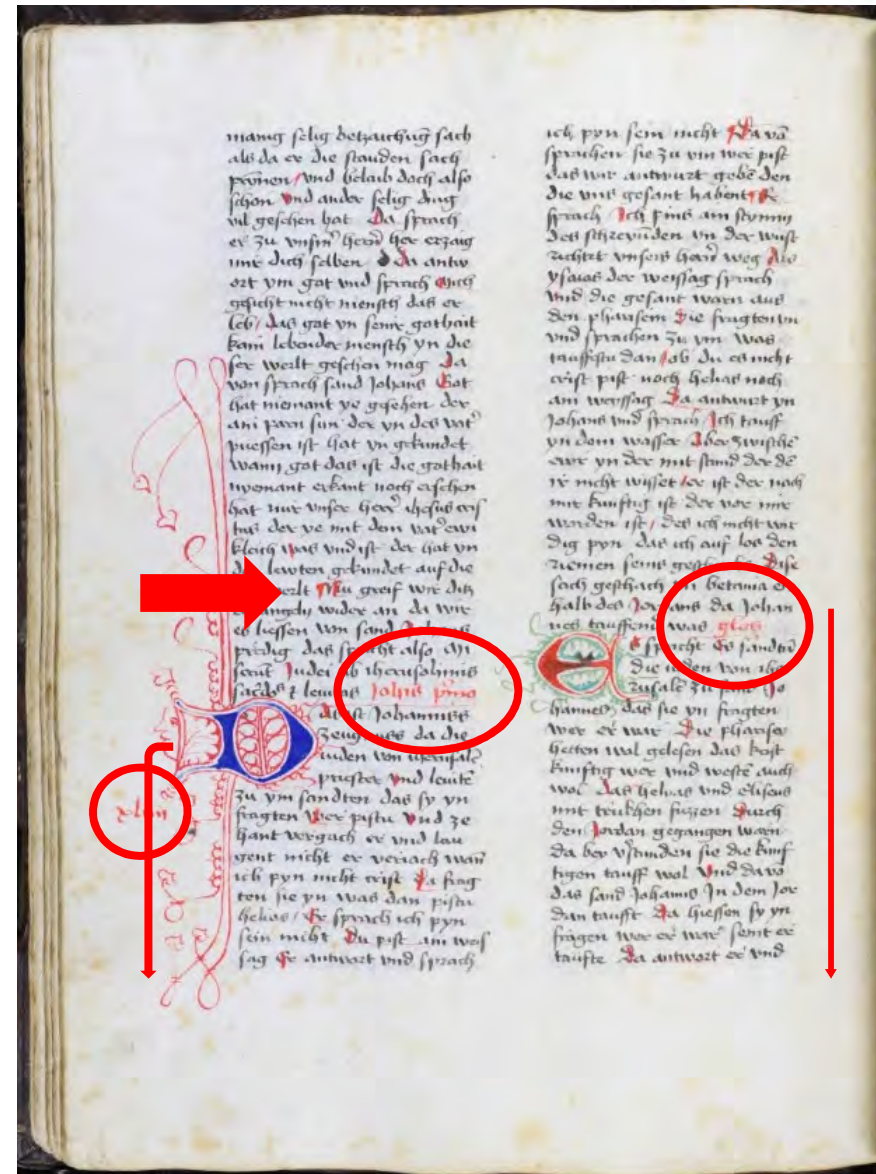 manig selig betzaichuḡ sach
als da er die stauden sach
prynnen / vnd belaib doch also
schon vnd ander selig ding
vil geschen hat Da sprach
er zu vnsm̄ hern̄ her erzaig
mir dich selben Da antw
ort ym got vnd sprach Mich
gesicht nicht mensch das er
leb / das got yn seinr gothait
kain lebender mensch yn die
ser werlt geschen mag Da
von sprach sand Johans Got
hat niemant ye gesehen der
ain parn sun der yn des vat̄
puessen ist hat vn gekundet
wann got das ist die gothait
nyemant erkant noch ersehen
hat nur vnser herr̄ ihesus cris
tus der ye mit dem vat̄ ewi
kleich was vnd ist der hat yn
lewten gekundet auf die
Nu greif wir ditz
ewangely wider an da wir
es liessen von sand
predig das spricht also Mi
serūt Judei ab iherusolimis
sacd̄s ⁊ leuitas Joh̄is p̄mo
Das ist Johannes
zeugnuss da die
iuden von iherusalē
priester vnd leuitē
xliiii
zu ym sandten das sy yn
fragten wer pistu Vnd ze
hant vergach er vnd lau
gent nicht er veriach wan̄
ich pyn nicht crist Da frag
ten sie yn was dan pistu
helias / Er sprach ich pyn
sein nicht Du pist ain weis
sag Er antwort vnd sprach
ich pyn sein nicht Da vō
sprachen sie zu ym wer pist
das wir antwurt gebē den
die vns gesant habent Er
sprach Ich pins ain stymm
des schreyunden yn der wust
Richtet vnsers hern̄ weg Als
ysaias der weissag sprach
Vnd die gesant warn aus
den pharisein Die fragten yn
vnd sprachen zu ym was
tauffestu dan / ob du es nicht
crist pist noch helias noch
ain weyssag Da antwurt yn
Johans vnd sprach Ich tauff
yn dem wasser Aber zwischē
ewr yn der mit stund der dē
ir nicht wisset / er ist der nach
mir kunftig ist der vor mir
worden ist / des ich nicht wir
dig pyn das ich auf los den
riemen seins Dise
sach geschach in betania e
halb des Jordans da Johan
nes tauffend was glos
Es spricht Es sandtn̄
die iuden von ihe
rusalē zu sant Jo
hannes das sie yn fragten
wer er wār Die pharisei
hetten wol gelesen das krist
kunftig wer vnd westē auch
wol das helias vnd eliseus
mit trukhen fuzzen durch
den Jordan gegangen warn
da bey v̄stunden sie die kunf
tigen tauff wol Vnd davō
das sand Johanns In dem Jor
dan taufft Da hiessen sy yn
fragen wer er war seint er
taufte Da antwort er vnd